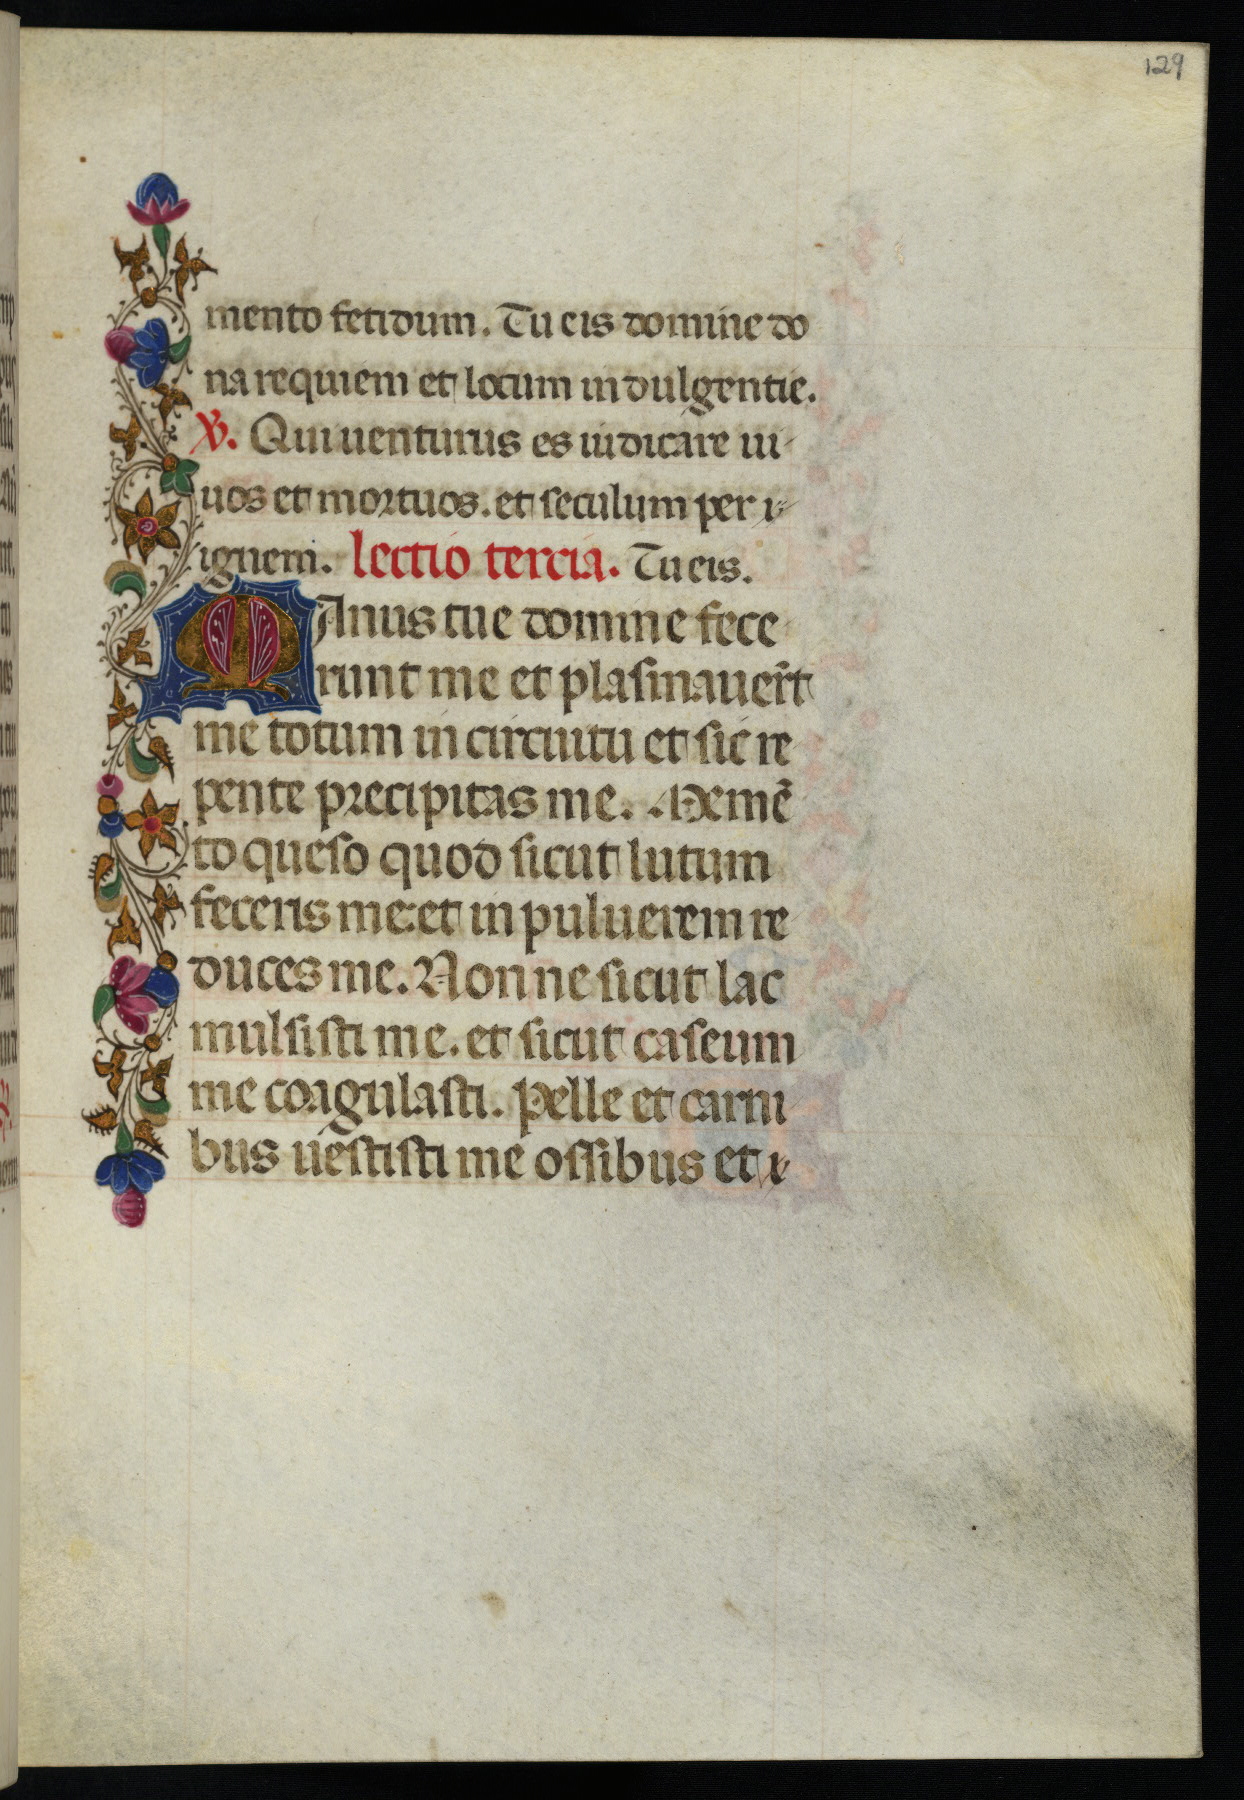 129
mento fetidum. Tu eis domine do
na requiem et locum indulgentie.
℣. Qui uenturus es iudicare ui
uos et mortuos. et seculum per i
ignem. lectio tercia. Tu eis.
Manus tue domine fece
runt me et plasmauer̃t
me totum in circuitu et sic re
pente precipitas me. Memẽ
to queso quod sicut lutum
feceris me: et in puluerem re
duces me. Nonne sicut lac
mulsisti me. et sicut caseum
me coagulasti. Pelle et carni
bus uestisti me ossibus et